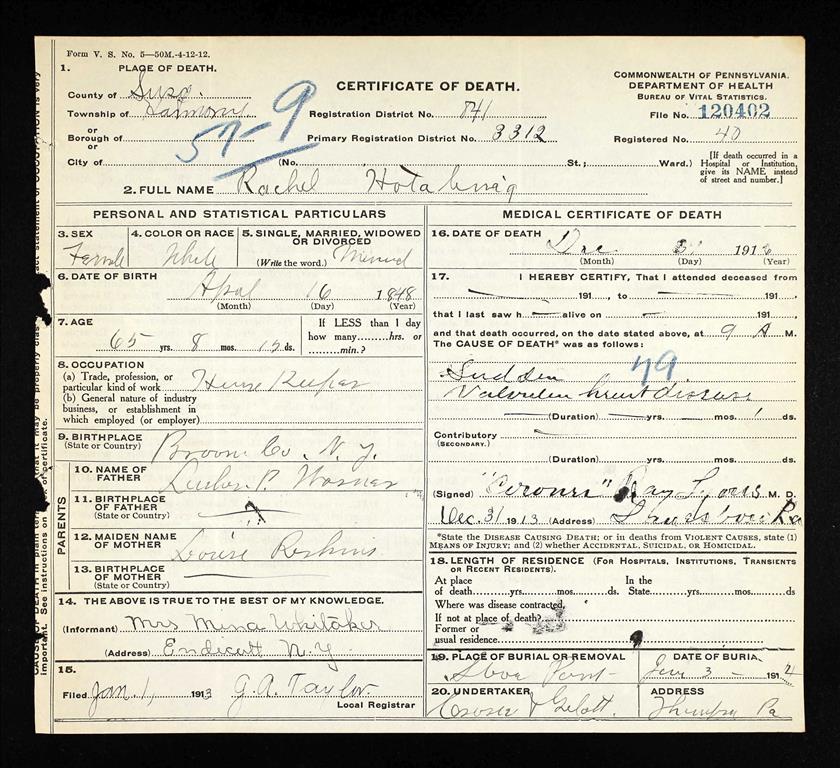 Form V. S. No. 5—50M.-4-12-12.
1. PLACE OF DEATH.
County of Susq.
Township of
or
Borough of
or
City of
57-9
CERTIFICATE OF DEATH.
Registration District No. 841
Primary Registration District No. 3312
(No. St.; Ward.)
COMMONWEALTH OF PENNSYLVANIA.
DEPARTMENT OF HEALTH
BUREAU OF VITAL STATISTICS.
File No. 120402
Registered No. 40
[If death occurred in a Hospital or Institution, give its NAME instead of street and number.]
2. FULL NAME Rachel Hotaling
PERSONAL AND STATISTICAL PARTICULARS
3. SEX
Female
4. COLOR OR RACE
White
5. SINGLE, MARRIED, WIDOWED OR DIVORCED
(Write the word.) Married
6. DATE OF BIRTH
April 16 1848
(Month) (Day) (Year)
7. AGE
65 yrs. 8 mos. 15 ds.
If LESS than 1 day
how many hrs. or
min.?
8. OCCUPATION
(a) Trade, profession, or
particular kind of work House Keeper
(b) General nature of industry
business, or establishment in
which employed (or employer)
9. BIRTHPLACE
(State or Country) Broom Co. N. Y.
PARENTS
10. NAME OF
FATHER P. Warner
11. BIRTHPLACE
OF FATHER
(State or Country) ?
12. MAIDEN NAME
OF MOTHER Louise
13. BIRTHPLACE
OF MOTHER
(State or Country)
14. THE ABOVE IS TRUE TO THE BEST OF MY KNOWLEDGE.
(Informant) Mrs Mina Whitaker
(Address) Endicott N. Y.
15.
Filed Jan. 1, 1913 G. A. Taylor.
Local Registrar
MEDICAL CERTIFICATE OF DEATH
16. DATE OF DEATH
Dec 31 1913
(Month) (Day) (Year)
17. I HEREBY CERTIFY, That I attended deceased from
191 , to 191 ,
that I last saw h alive on 191 ,
and that death occurred, on the date stated above, at 9 A M.
The CAUSE OF DEATH* was as follows:
Sudden 79
Valvular heart disease
(Duration) yrs. mos. 1 ds.
Contributory
(SECONDARY.)
(Duration) yrs. mos. ds.
(Signed) "Coroner" Ray M. D.
Dec. 31 1913 (Address) Pa
*State the DISEASE CAUSING DEATH; or in deaths from VIOLENT CAUSES, state (1)
MEANS OF INJURY; and (2) whether ACCIDENTAL, SUICIDAL, OR HOMICIDAL.
18. LENGTH OF RESIDENCE (FOR HOSPITALS, INSTITUTIONS, TRANSIENTS
OR RECENT RESIDENTS).
At place
of death yrs. mos. ds
In the
State yrs. mos. ds
Where was disease contracted,
If not at place of death?
Former or
usual residence
19. PLACE OF BURIAL OR REMOVAL
DATE OF BURIAL
Jan 3 1914
20. UNDERTAKER
Gelatt.
ADDRESS
Thompson Pa